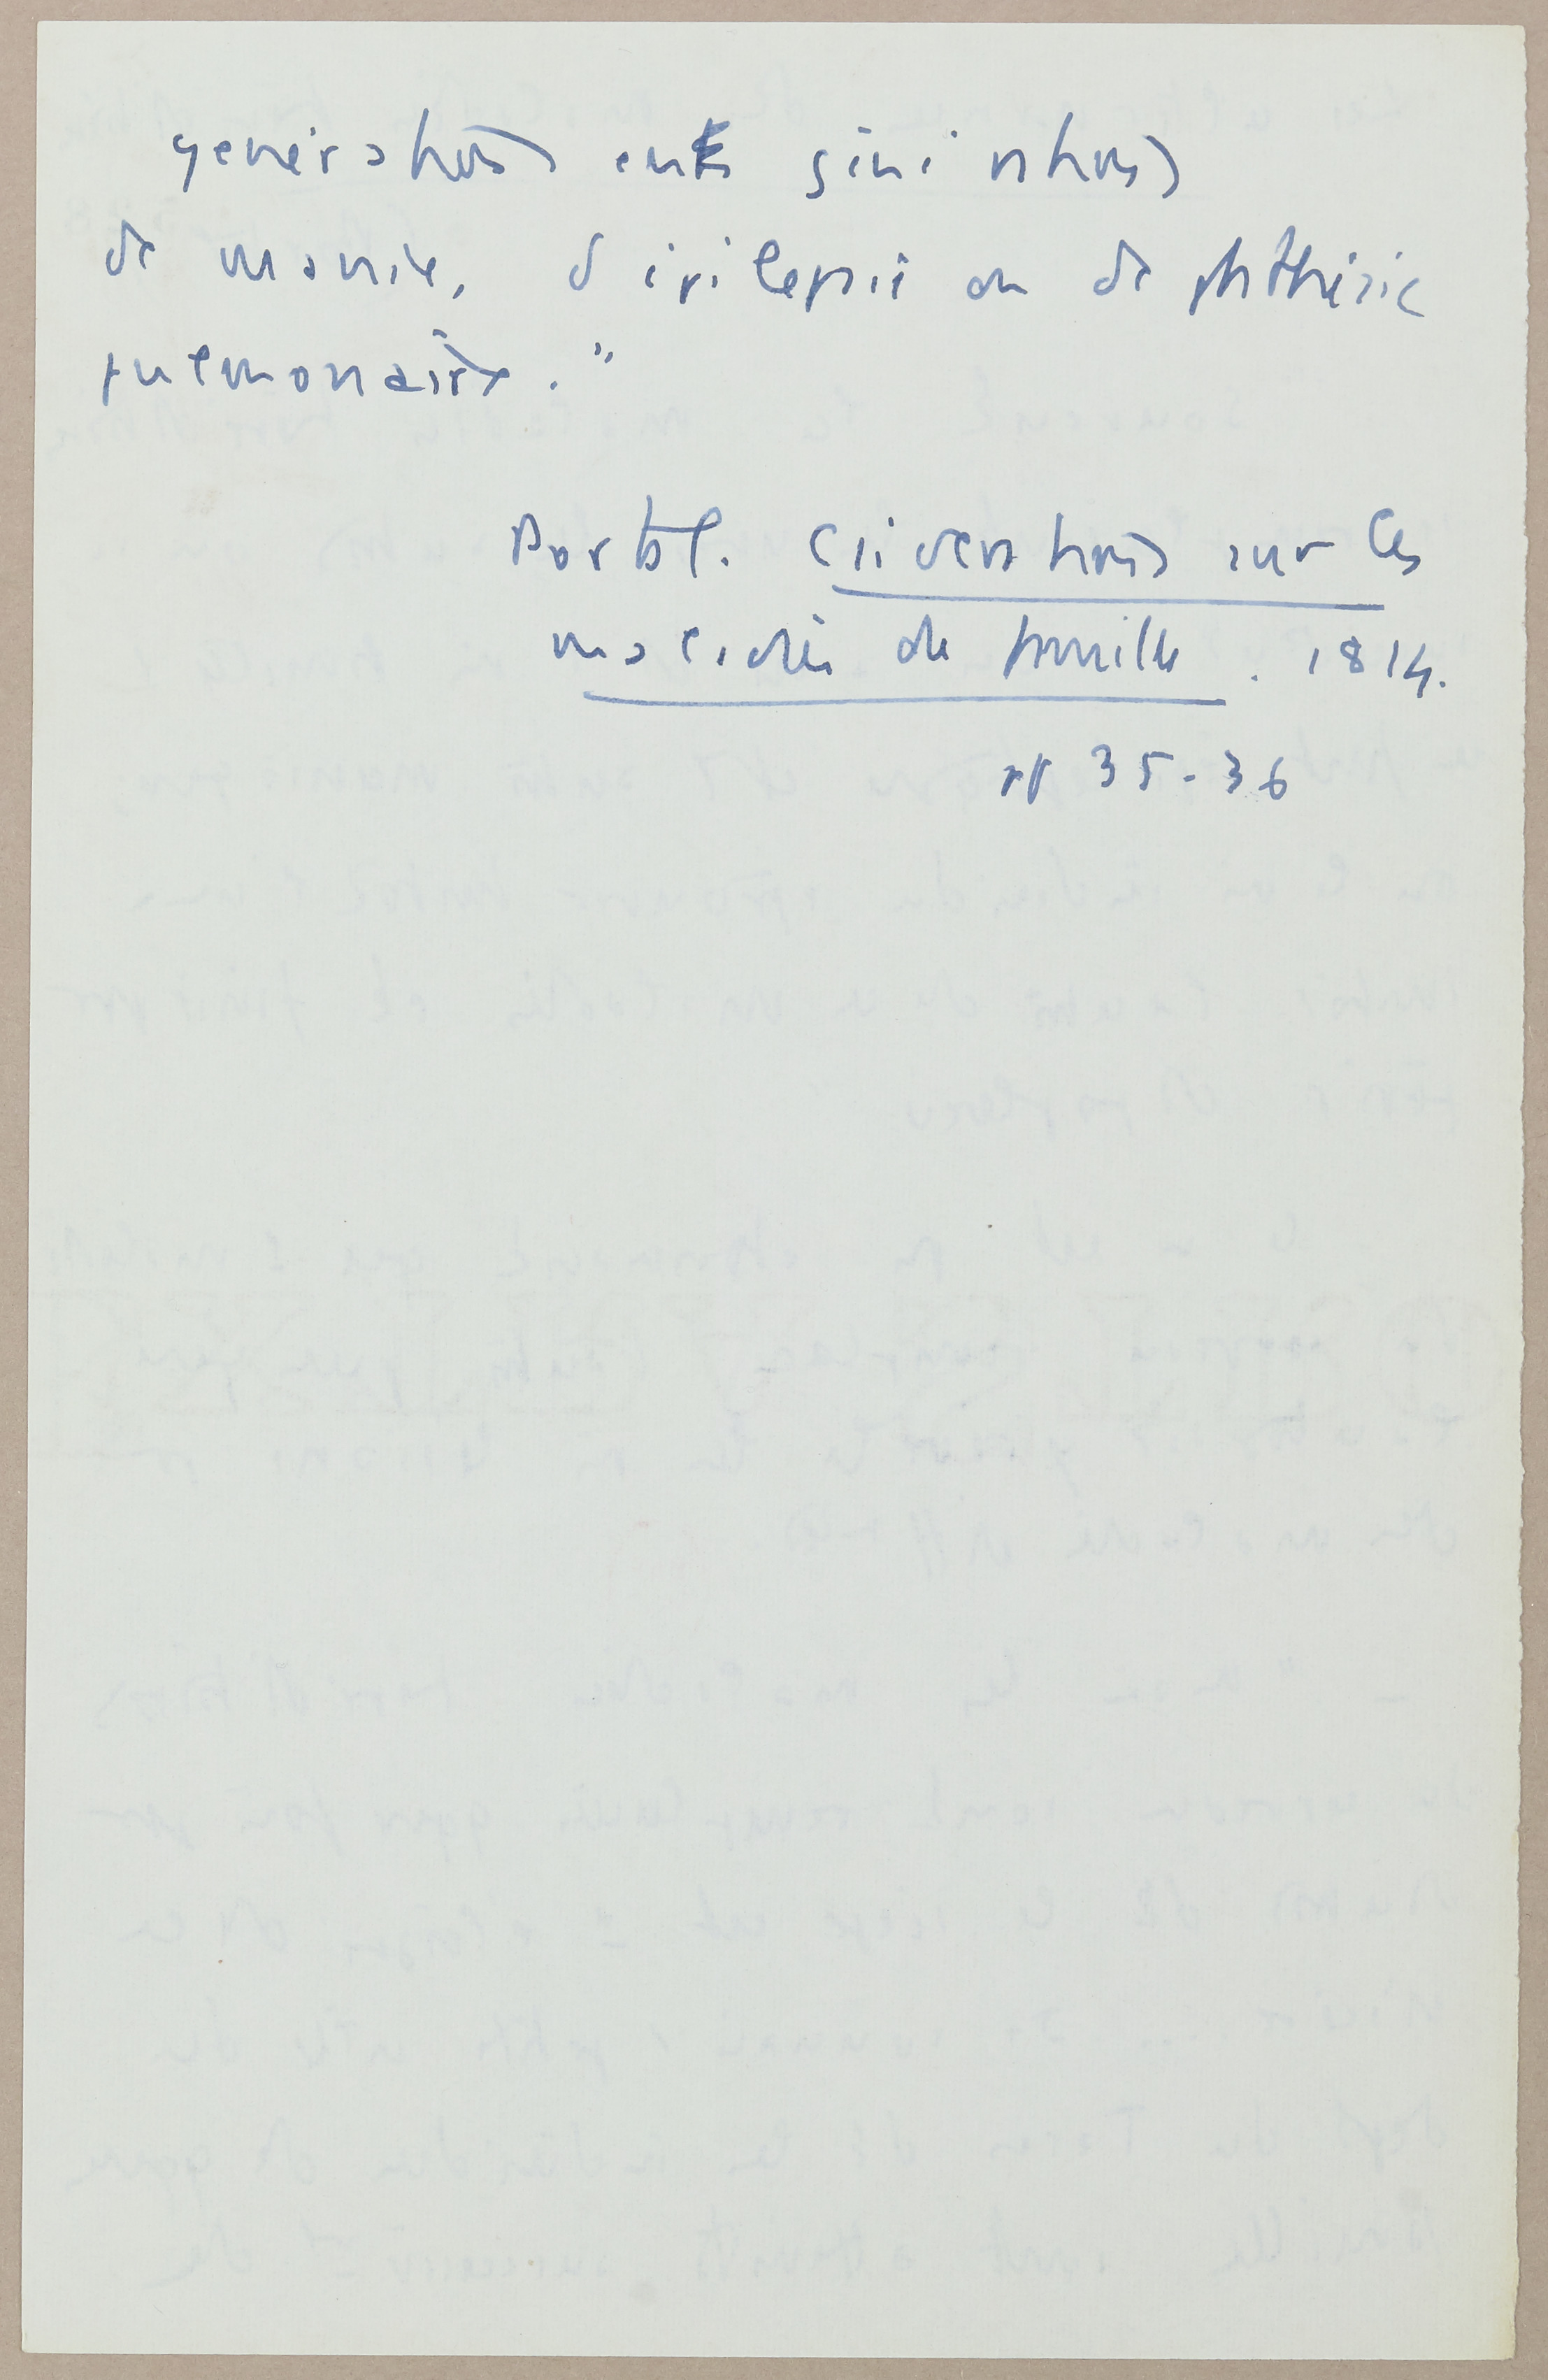 générations en générations
de manie, d'épilepsie ou de phthisie
pulmonaire."
Portal. Considérations sur les
maladies de famille. 1814.
pp 35-36